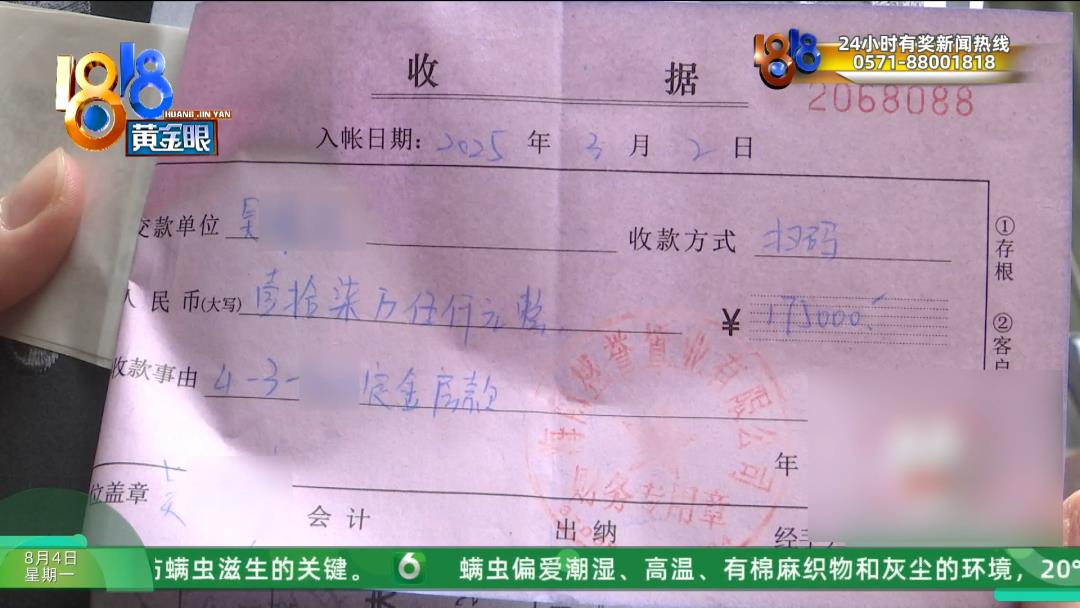 1818
HUANG JIN YAN
黄金眼
24小时有奖新闻热线
0571-88001818
收 据
2068088
入帐日期: 2025 年 3 月 2 日
交款单位 吴
收款方式 扫码
人民币(大写) 壹拾柒万伍仟元整
¥ 175000.
收款事由 4-3- 定金房款
①存根
②客户
置业有限公司
财务专用章
年
位盖章
会计
出纳
经手
8月4日
星期一
防螨虫滋生的关键。 6 螨虫偏爱潮湿、高温、有棉麻织物和灰尘的环境，20°